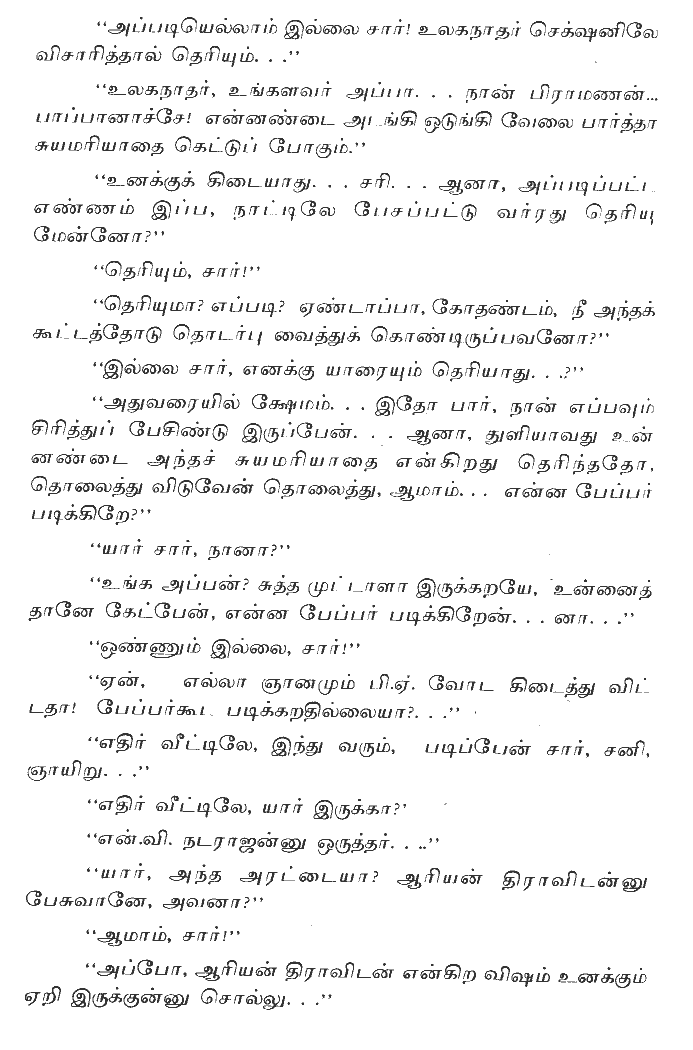 “அப்படியெல்லாம் இல்லை சார்! உலகநாதர் செக்‌ஷனிலே
விசாரித்தால் தெரியும். . .”
“உலகநாதர், உங்களவர் அப்பா. . . நான் பிராமணன்...
பாப்பானாச்சே! என்னண்டை அடங்கி ஒடுங்கி வேலை பார்த்தா
சுயமரியாதை கெட்டுப் போகும்.”
“உனக்குக் கிடையாது. . . சரி. . . ஆனா, அப்படிப்பட்ட
எண்ணம் இப்ப, நாட்டிலே பேசப்பட்டு வர்ரது தெரியு
மேன்னோ?”
“தெரியும், சார்!”
“தெரியுமா? எப்படி? ஏண்டாப்பா, கோதண்டம், நீ அந்தக்
கூட்டத்தோடு தொடர்பு வைத்துக் கொண்டிருப்பவனோ?”
“இல்லை சார், எனக்கு யாரையும் தெரியாது. . .?”
“அதுவரையில் க்ஷேமம். . . இதோ பார், நான் எப்பவும்
சிரித்துப் பேசிண்டு இருப்பேன். . . ஆனா, துளியாவது உன்
னண்டை அந்தச் சுயமரியாதை என்கிறது தெரிந்ததோ,
தொலைத்து விடுவேன் தொலைத்து, ஆமாம். . . என்ன பேப்பர்
படிக்கிறே?”
“யார் சார், நானா?”
“உங்க அப்பன்? சுத்த முட்டாளா இருக்கறயே, உன்னைத்
தானே கேட்பேன், என்ன பேப்பர் படிக்கிறேன். . . னா. . .”
“ஒண்ணும் இல்லை, சார்!”
“ஏன், எல்லா ஞானமும் பி.ஏ. வோட கிடைத்து விட்
டதா! பேப்பர்கூட படிக்கறதில்லையா?. . .”
“எதிர் வீட்டிலே, இந்து வரும், படிப்பேன் சார், சனி,
ஞாயிறு. . .”
“எதிர் வீட்டிலே, யார் இருக்கா?’
“என்.வி. நடராஜன்னு ஒருத்தர். . ..”
“யார், அந்த அரட்டையா? ஆரியன் திராவிடன்னு
பேசுவானே, அவனா?”
“ஆமாம், சார்!”
“அப்போ, ஆரியன் திராவிடன் என்கிற விஷம் உனக்கும்
ஏறி இருக்குன்னு சொல்லு. . .”